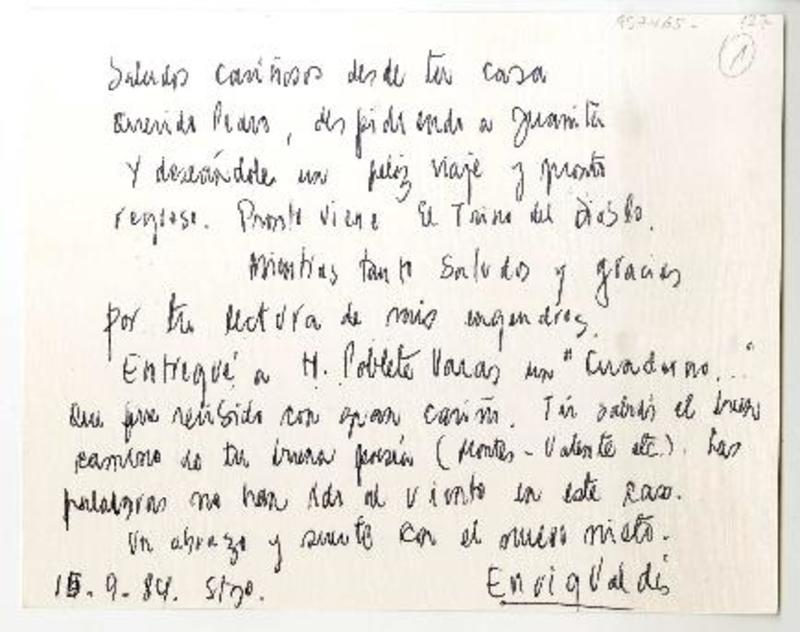 1
Saludos cariñosos desde tu casa
Querido Pedro, despidiendo a Juanita
Y deseándole un feliz viaje y pronto
regreso. Pronto viene El Trino del Diablo.
Mientras tanto saludos y gracias
por tu lectura de mis engendros.
Entregué a H. Poblete Varas un "Cuaderno..."
que fue recibido con gran cariño. Tú sabrás el buen
camino de tu buena poesía (Montes - Valente etc.). Las
palabras no han ido al viento en este caso.
Un abrazo y suerte con el nuevo nieto.
9.84. Stgo. EnriqValdés